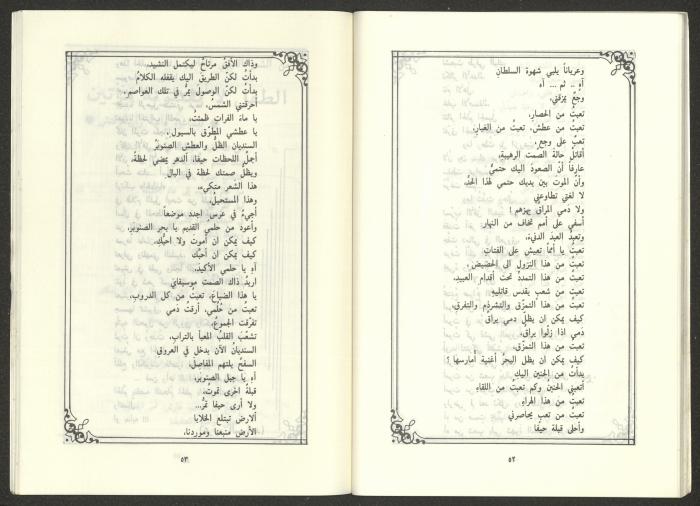 وعرياناً يلبي شهوة السلطان
آهِ .. ثم ... آه
وجعٌ يمزقني،
تعبتُ من الحصار،
تعبتُ من عطش، تعبتُ من الغبار،
تعبٌ على وجع،
أقاتل حالة الصمت الرهيبة،
عارفاً أنّ الصعودَ اليك حتميٌ
وأنّ الموتَ بين يديك حتمي لهذا الحدّ،
لا لغتي تطاوعني
ولا دَمي المراق يهزهم !
أسفي على أمم تخاف من النهار
وتعبدُ العبدَ الدنيءَ،
تعبتُ يا أمماً تعيش على الفتاتِ
تعبتُ من هذا النزول الى الحضيض،
تعبتُ من هذا التمدد تحت أقدام العبيد،
تعبتُ من شعب يقدس قاتليهِ
تعبتُ من هذا التمزّق والتشرذم والتفرق،
كيف يمكن ان يظلّ دمي يراقُ
دَمي اذا زلّوا يراقُ،
تعبتُ من هذا التمزّق،
كيف يمكن ان يظل البحرُ أغنية أمارسها ؟
بدأتُ من الحنين اليك
أتعبني الحنين وكم تعبت من اللقاءِ
تعبتُ من هذا الهراءِ
تعبتُ من تعبٍ يحاصرني
وأحلى قبلة حيفا
٥٢
وذاك الأفق مرتاحٌ ليكتمل النشيد،
بدأتُ لكنّ الطريق اليك يقفله الكلامُ
بدأتُ لكنّ الوصول يمرُّ في تلك العواصم،
أحرقتني الشمسُ،
يا ماءَ الفرات ظمئتُ،
يا عطشي المطوّق بالسيول،
السنديان الظلُّ والعطش الصنوبرُ
أجملُ اللحظات حيفا، الدهر يمضي لحظةً،
ويظلُّ صمتك لحظة في البال
هذا الشعر متكيء،
وهذا المستحيلُ،
أجيءُ في عرس اجدد موضعاً
وأعودُ من حلمي القديم يا بحر الصنوبر،
كيف يمكن ان أموتَ ولا احبّك،
كيف يمكن ان أحبّك
آهِ يا حلمي الأكيد،
اريدُ ذاك الصمت موسيقايَ
يا هذا الضياع، تعبتُ من كل الدروب،
تعبتُ من حُلمي، أرقتُ دَمي
تفرّقت الجموعُ،
تشعّبَ القلبُ المعبأ بالتراب،
السنديانُ الآن يدخل في العروق،
السفحُ يلتهم المفاصلَ،
آهِ يا جبل الصنوبر،
قبلةٌ اخرى تموت،
ولا أرى حيفا تمرُّ...
ألارض تبتلع الخلايا
الأرض منبعنا وموردنا،
٥٣